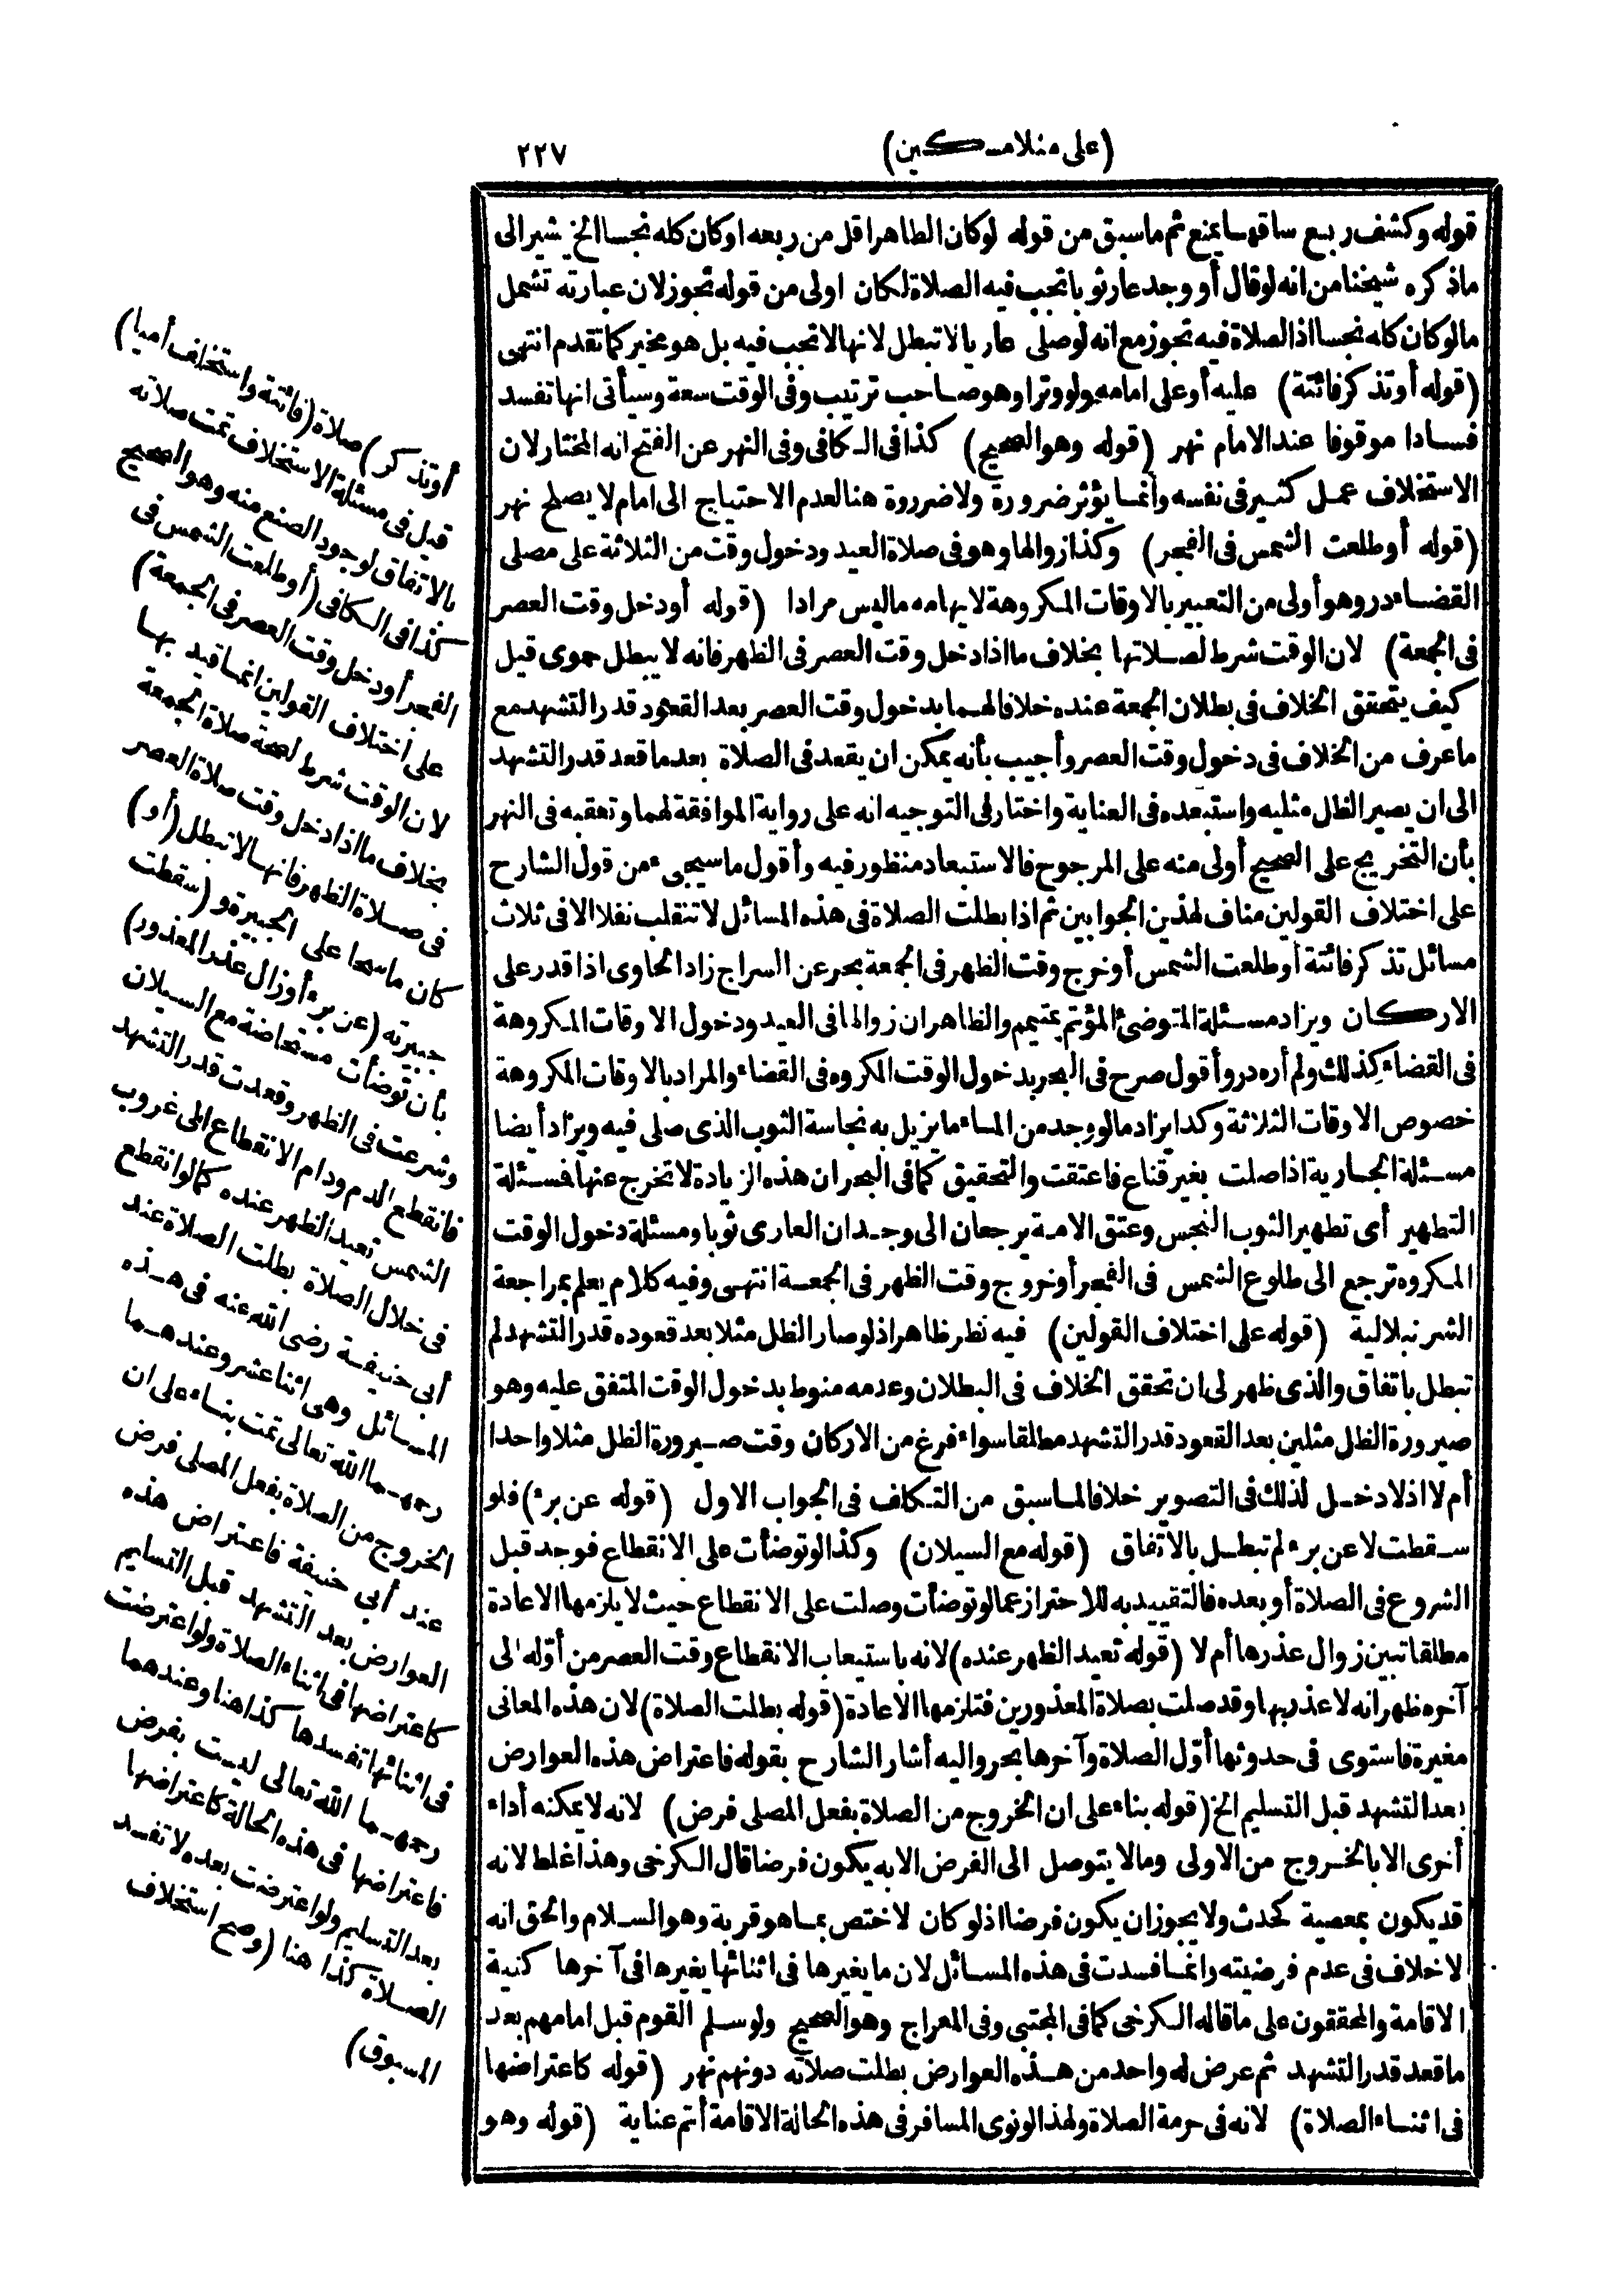 (على منلامسكين)
٢٢٧
قوله وكشف ربع ساقها يمنع ثم ما سبق من قوله لو كان الطاهر اقل من ربعه او كان كله نجسا الخ يشير الى
ما ذكره شيخنا من انه لو قال أو وجد عار ثوبا تجب فيه الصلاة لكان اولى من قوله تجوز لان عبارته تشمل
مالو كان كله نجسا اذ الصلاة فيه تجوز مع انه لو صلى عاريا لا تبطل لانها لا تجب فيه بل هو مخير كما تقدم انتهى
(قوله أو تذكر فائتة) عليه أو على امامه ولو وترا وهو صاحب ترتيب وفى الوقت سعة وسيأتى انها تفسد
فسادا موقوفا عند الامام نهر (قوله وهو الصحيح) كذا فى الكافى وفى النهر عن الفتح انه المختار لان
الاستخلاف عمل كثير فى نفسه وانما يؤثر ضرورة ولا ضرورة هنا لعدم الاحتياج الى امام لا يصلح نهر
(قوله أو طلعت الشمس فى الفجر) وكذا زوالها وهو فى صلاة العيد ودخول وقت من الثلاثة على مصلى
القضاء در وهو أولى من التعبير بالاوقات المكروهة لايهامه ما ليس مرادا (قوله أو دخل وقت العصر
فى الجمعة) لان الوقت شرط لصلاتها بخلاف ما اذا دخل وقت العصر فى الظهر فانه لا يبطل حموى قيل
كيف يتحقق الخلاف فى بطلان الجمعة عنده خلافا لهما بدخول وقت العصر بعد القعود قدر التشهد مع
ما عرف من الخلاف فى دخول وقت العصر وأجيب بأنه يمكن ان يقعد فى الصلاة بعد ما قعد قدر التشهد
الى ان يصير الظل مثليه واستبعده فى العناية واختار فى التوجيه انه على رواية الموافقة لهما وتعقبه فى النهر
بأن التخريج على الصحيح أولى منه على المرجوح فالاستبعاد منظور فيه وأقول ما سيجىء من قول الشارح
على اختلاف القولين مناف لهذين الجوابين ثم اذا بطلت الصلاة فى هذه المسائل لا تنقلب نفلا الا فى ثلاث
مسائل تذكر فائتة أو طلعت الشمس أو خرج وقت الظهر فى الجمعة بحر عن السراج زاد الحاوى اذا قدر على
الاركان ويزاد مسئلة المتوضئ المؤتم بمتيمم والظاهر ان زوالها فى العيد ودخول الاوقات المكروهة
فى القضاء كذلك ولم أره در وأقول صرح فى البحر بدخول الوقت المكروه فى القضاء والمراد بالاوقات المكروهة
خصوص الاوقات الثلاثة وكذا يزاد ما لو وجد من الماء ما يزيل به نجاسة الثوب الذى صلى فيه ويزاد أيضا
مسئلة الجارية اذا صلت بغير قناع فاعتقت والتحقيق كما فى البحر ان هذه الزيادة لا تخرج عنها فمسئلة
التطهير أى تطهير الثوب النجس وعتق الامة يرجعان الى وجدان العارى ثوبا ومسئلة دخول الوقت
المكروه ترجع الى طلوع الشمس فى الفجر أو خروج وقت الظهر فى الجمعة انتهى وفيه كلام يعلم بمراجعة
الشرنبلالية (قوله على اختلاف القولين) فيه نظر ظاهر اذ لو صار الظل مثلا بعد قعوده قدر التشهد لم
تبطل باتفاق والذى ظهر لى ان تحقق الخلاف فى البطلان وعدمه منوط بدخول الوقت المتفق عليه وهو
صيرورة الظل مثلين بعد القعود قدر التشهد مطلقا سواء فرغ من الاركان وقت صيرورة الظل مثلا واحدا
أم لا اذ لا دخل لذلك فى التصوير خلافا لما سبق من التكلف فى الجواب الاول (قوله عن برء) فلو
سقطت لا عن برء لم تبطل بالاتفاق (قوله مع السيلان) وكذا لو توضأت على الانقطاع فوجد قبل
الشروع فى الصلاة أو بعده فالتقييد به للاحتراز عما لو توضأت وصلت على الانقطاع حيث لا يلزمها الاعادة
مطلقا تبين زوال عذرها أم لا (قوله تعيد الظهر عنده) لانه باستيعاب الانقطاع وقت العصر من أوّله الى
آخره ظهر انه لا عذر بها وقد صلت بصلاة المعذورين فتلزمها الاعادة (قوله بطلت الصلاة) لان هذه المعانى
مغيرة فاستوى فى حدوثها أوّل الصلاة وآخرها بحر واليه أشار الشارح بقوله فاعتراض هذه العوارض
بعد التشهد قبل التسليم الخ (قوله بناء على ان الخروج من الصلاة بفعل المصلى فرض) لانه لا يمكنه أداء
أخرى الا بالخروج من الاولى وما لا يتوصل الى الفرض الا به يكون فرضا قال الكرخى وهذا غلط لانه
قد يكون بمعصية كحدث ولا يجوز ان يكون فرضا اذ لو كان لاختص بما هو قربة وهو السلام والحق انه
لا خلاف فى عدم فرضيته وانما فسدت فى هذه المسائل لان ما يغيرها فى اثنائها يغيرها فى آخرها كنية
الاقامة والمحققون على ما قاله الكرخى كما فى المجتبى وفى المعراج وهو الصحيح ولو سلم القوم قبل امامهم بعد
ما قعد قدر التشهد ثم عرض له واحد من هذه العوارض بطلت صلاته دونهم نهر (قوله كاعتراضها
فى اثناء الصلاة) لانه فى حرمة الصلاة ولهذا لو نوى المسافر فى هذه الحالة الاقامة أتم عناية (قوله وهو
أو تذكر) صلاة (فائتة واستخلف أميا)
قيل فى مسئلة الاستخلاف تمت صلاته
بالاتفاق لوجود الصنع منه وهو الصحيح
كذا فى الكافى (أو طلعت الشمس فى
الفجر أو دخل وقت العصر فى الجمعة)
على اختلاف القولين انما قيد بها
لان الوقت شرط لصحة صلاة الجمعة
بخلاف ما اذا دخل وقت صلاة العصر
فى صلاة الظهر فانها لا تبطل (أو)
كان ماسحا على الجبيرة و (سقطت
جبيرته (عن برء أو زال عذر المعذور)
بأن توضأت مستحاضة مع السيلان
وشرعت فى الظهر وقعدت قدر التشهد
فانقطع الدم ودام الانقطاع الى غروب
الشمس تعيد الظهر عنده كما لو انقطع
فى خلال الصلاة بطلت الصلاة عند
أبى حنيفة رضى الله عنه فى هذه
المسائل وهى اثنا عشر وعندهما
رحمهما الله تعالى تمت بناء على ان
الخروج من الصلاة بفعل المصلى فرض
عند أبى حنيفة فاعتراض هذه
العوارض بعد التشهد قبل التسليم
كاعتراضها فى اثناء الصلاة ولو اعترضت
فى اثنائها تفسدها كذا هنا وعندهما
رحمهما الله تعالى ليست بفرض
فاعتراضها فى هذه الحالة كاعتراضها
بعد التسليم ولو اعترضت بعده لا تفسد
الصلاة كذا هنا (وصح استخلاف
المسبوق)